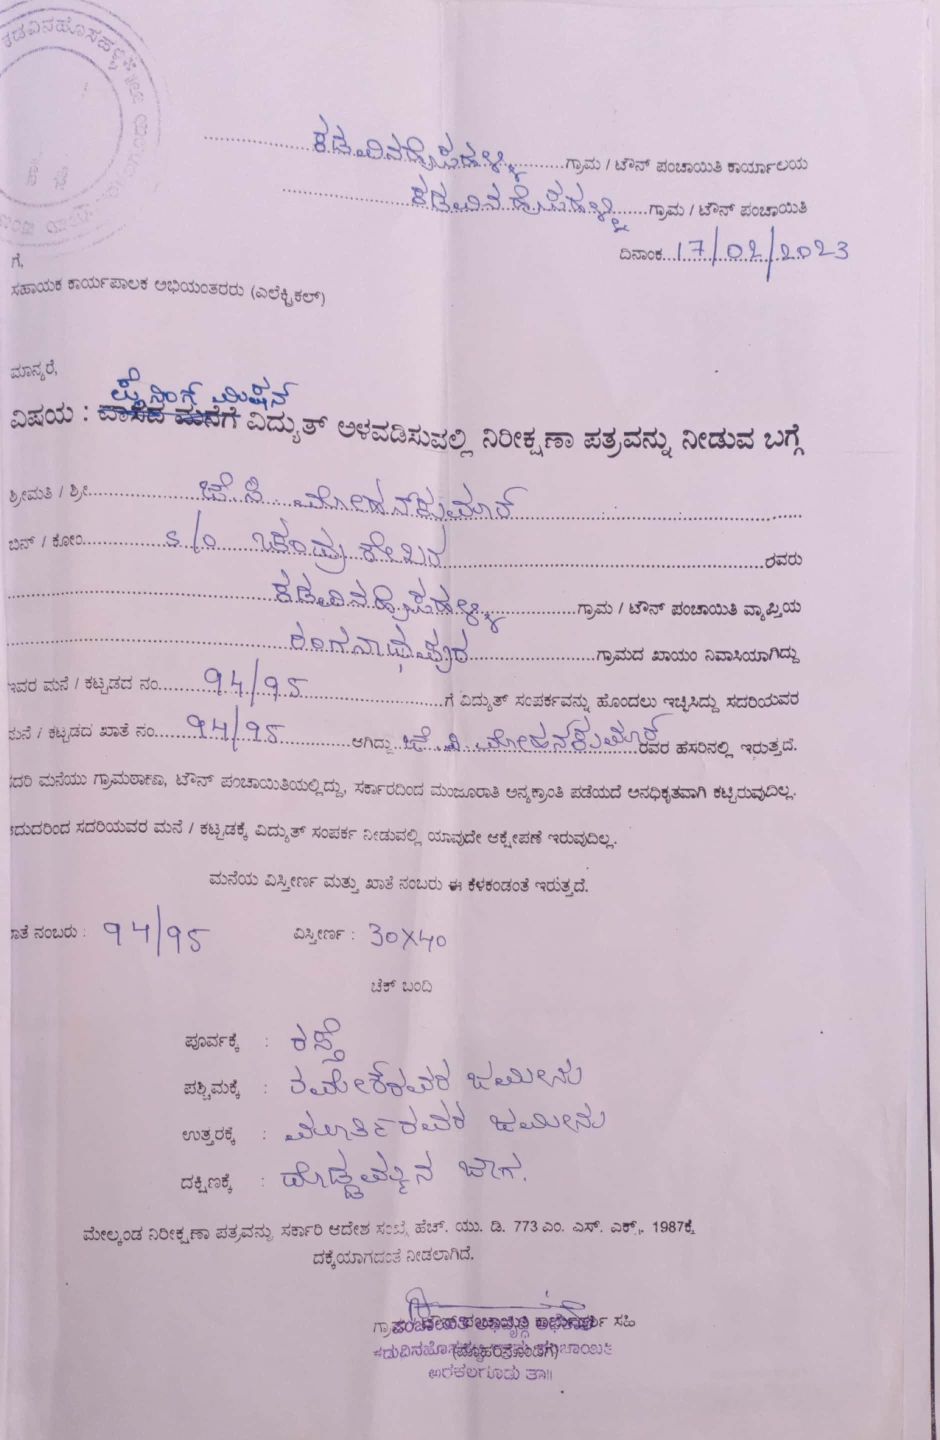 ಕಡವಿನಹೊಸಹಳ್ಳಿ
ಕಡುವಿನಹೊಸಹಳ್ಳಿ ಗ್ರಾಮ / ಟೌನ್ ಪಂಚಾಯಿತಿ ಕಾರ್ಯಾಲಯ
ಕಡುವಿನಹೊಸಹಳ್ಳಿ ಗ್ರಾಮ / ಟೌನ್ ಪಂಚಾಯಿತಿ
ದಿನಾಂಕ 17/02/2023
ಗೆ,
ಸಹಾಯಕ ಕಾರ್ಯಪಾಲಕ ಅಭಿಯಂತರರು (ಎಲೆಕ್ಟ್ರಿಕಲ್)
ಮಾನ್ಯರೆ,
ಮಿಷಿನ್
ವಿಷಯ : ವಾಸದ ಮನೆಗೆ ವಿದ್ಯುತ್ ಅಳವಡಿಸುವಲ್ಲಿ ನಿರೀಕ್ಷಣಾ ಪತ್ರವನ್ನು ನೀಡುವ ಬಗ್ಗೆ
ಶ್ರೀಮತಿ / ಶ್ರೀ ಜೆ.ಸಿ. ಮೋಹನ್‌ಕುಮಾರ್
ಬಿನ್ / ಕೋಂ S/o ಚಂದ್ರಶೇಖರ ರವರು
ಕಡುವಿನಹೊಸಹಳ್ಳಿ ಗ್ರಾಮ / ಟೌನ್ ಪಂಚಾಯಿತಿ ವ್ಯಾಪ್ತಿಯ
ರಂಗನಾಥಪುರ ಗ್ರಾಮದ ಖಾಯಂ ನಿವಾಸಿಯಾಗಿದ್ದು
ಇವರ ಮನೆ / ಕಟ್ಟಡದ ನಂ 94/95 ಗೆ ವಿದ್ಯುತ್ ಸಂಪರ್ಕವನ್ನು ಹೊಂದಲು ಇಚ್ಛಿಸಿದ್ದು ಸದರಿಯವರ
ಮನೆ / ಕಟ್ಟಡದ ಖಾತೆ ನಂ 94/95 ಆಗಿದ್ದು ಜೆ.ಸಿ. ಮೋಹನಕುಮಾರ್ ರವರ ಹಸರಿನಲ್ಲಿ ಇರುತ್ತದೆ.
ಸದರಿ ಮನೆಯು ಗ್ರಾಮಠಾಣಾ, ಟೌನ್ ಪಂಚಾಯಿತಿಯಲ್ಲಿದ್ದು, ಸರ್ಕಾರದಿಂದ ಮಂಜೂರಾತಿ ಅನ್ಯಕ್ರಾಂತಿ ಪಡೆಯದೆ ಅನಧಿಕೃತವಾಗಿ ಕಟ್ಟಿರುವುದಿಲ್ಲ.
ಆದುದರಿಂದ ಸದರಿಯವರ ಮನೆ / ಕಟ್ಟಡಕ್ಕೆ ವಿದ್ಯುತ್ ಸಂಪರ್ಕ ನೀಡುವಲ್ಲಿ ಯಾವುದೇ ಆಕ್ಷೇಪಣೆ ಇರುವುದಿಲ್ಲ.
ಮನೆಯ ವಿಸ್ತೀರ್ಣ ಮತ್ತು ಖಾತೆ ನಂಬರು ಈ ಕೆಳಕಂಡಂತೆ ಇರುತ್ತದೆ.
ಖಾತೆ ನಂಬರು : 94/95 ವಿಸ್ತೀರ್ಣ : 30X40
ಚೆಕ್ ಬಂದಿ
ಪೂರ್ವಕ್ಕೆ : ರಸ್ತೆ
ಪಶ್ಚಿಮಕ್ಕೆ : ರಮೇಶರವರ ಜಮೀನು
ಉತ್ತರಕ್ಕೆ : ಮೂರ್ತಿರವರ ಜಮೀನು
ದಕ್ಷಿಣಕ್ಕೆ : ದೊಡ್ಡಮ್ಮನ ಜಾಗ.
ಮೇಲ್ಕಂಡ ನಿರೀಕ್ಷಣಾ ಪತ್ರವನ್ನು ಸರ್ಕಾರಿ ಆದೇಶ ಸಂಖ್ಯೆ ಹೆಚ್. ಯು. ಡಿ. 773 ಎಂ. ಎಸ್. ಎಕ್ಸ್. 1987ಕ್ಕೆ
ದಕ್ಕೆಯಾಗದಂತೆ ನೀಡಲಾಗಿದೆ.
ಗ್ರಾಮ / ಟೌನ್ ಪಂಚಾಯಿತಿ ಕಾರ್ಯದರ್ಶಿ ಸಹಿ
(ಮೊಹರಿನೊಂದಿಗೆ)
ಅರಕಲಗೂಡು ತಾ||